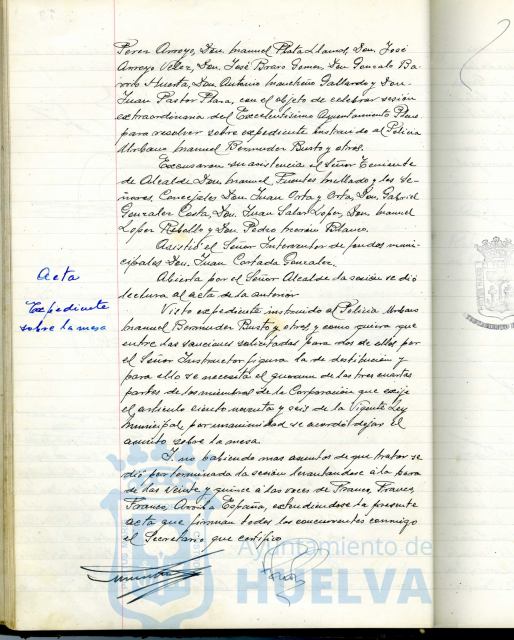 Perez Arroyo, Don Manuel Plata Llanos, Don José
Arroyo Velez, Don José Bravo Gomez, Don Gonzalo Ba-
rro Huerta, Don Antonio Mancheño Gallardo y Don
Juan Pastor Plaza, con el objeto de celebrar sesión
extraordinaria del Excelentísimo Ayuntamiento Pleno
para resolver sobre expediente instruido al Policia
Urbano Manuel Bermudez Busto y otros.
Excusaron su asistencia el Señor Teniente
de Alcalde Don Manuel Fuentes Mellado y los Se-
ñores Concejales Don Juan Orta y Orta, Don Gabriel
Gonzalez Costa, Don Juan Salas Lopez, Don Manuel
Lopez Rebollo y Don Pedro Morón Blanco.
Asistió el Señor Interventor de fondos muni-
cipales Don Juan Cortada Gonzalez.
Acta
Abierta por el Señor Alcalde la sesión se dió
lectura al acta de la anterior
Expediente
sobre la mesa
Visto expediente instruido al Policia Urbano
Manuel Bermudez Busto y otros y como quiera que
entre las sanciones solicitadas para dos de ellos por
el Señor Instructor figura la de destitución y
para ello se necesita el quorum de las tres cuartas
partes de los miembros de la Corporación que exije
el articulo ciento noventa y seis de la Vigente Ley
Municipal, por unanimidad se acordó dejar el
asunto sobre la mesa.
Y no habiendo mas asuntos de que tratar se
dió por terminada la sesión levantandose á la hora
de las veinte y quince á las voces de Franco, Franco,
Franco, Arriba España, extendiendose la presente
acta que firman todos los concurrentes conmigo
el Secretario que certifico
Ayuntamiento de
HUELVA